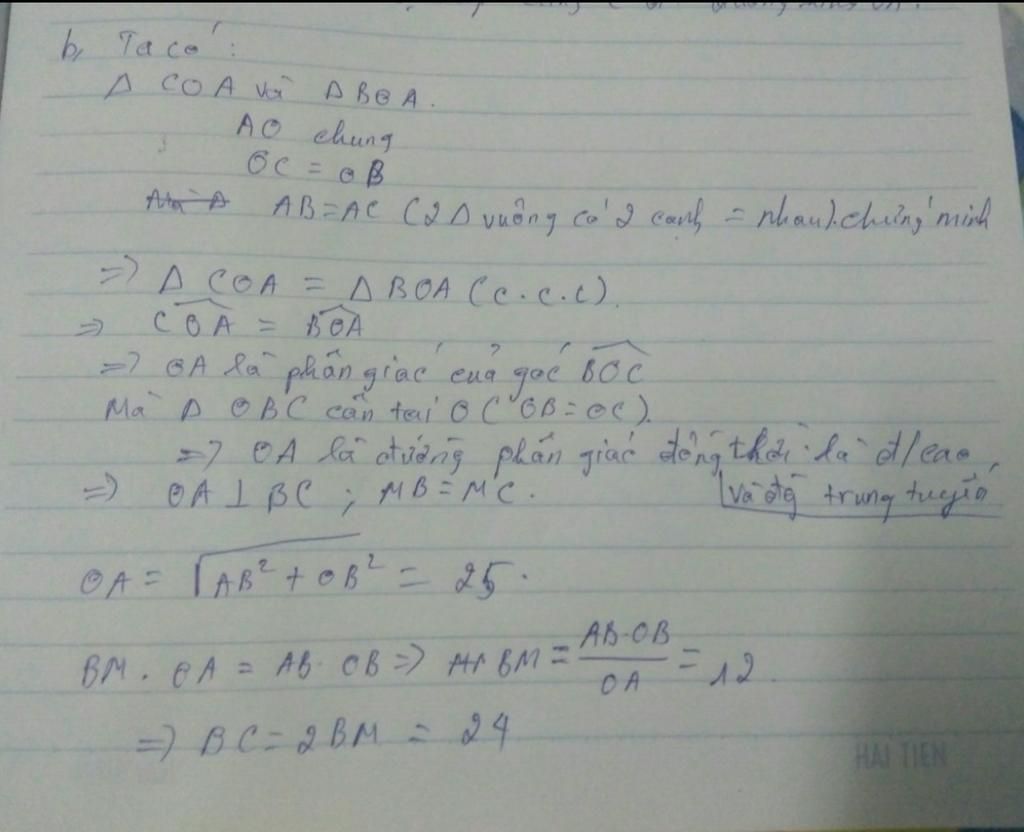 b, Ta có :
Δ COA và Δ BOA.
AO chung
OC = OB
AB = AC (2Δ vuông có 2 cạnh = nhau). chứng minh
=> Δ COA = Δ BOA (c.c.c).
=> COA = BOA
=> OA là phân giác của góc BOC
Mà Δ OBC cân tại O (OB=OC).
=> OA là đường phân giác đồng thời là đ/cao,
và đg trung tuyến
=> OA ⊥ BC ; MB = MC.
OA = √AB² + OB² = 25.
BM . OA = AB. OB => BM = AB.OB/OA = 12.
=> BC = 2BM = 24
HAI TIEN